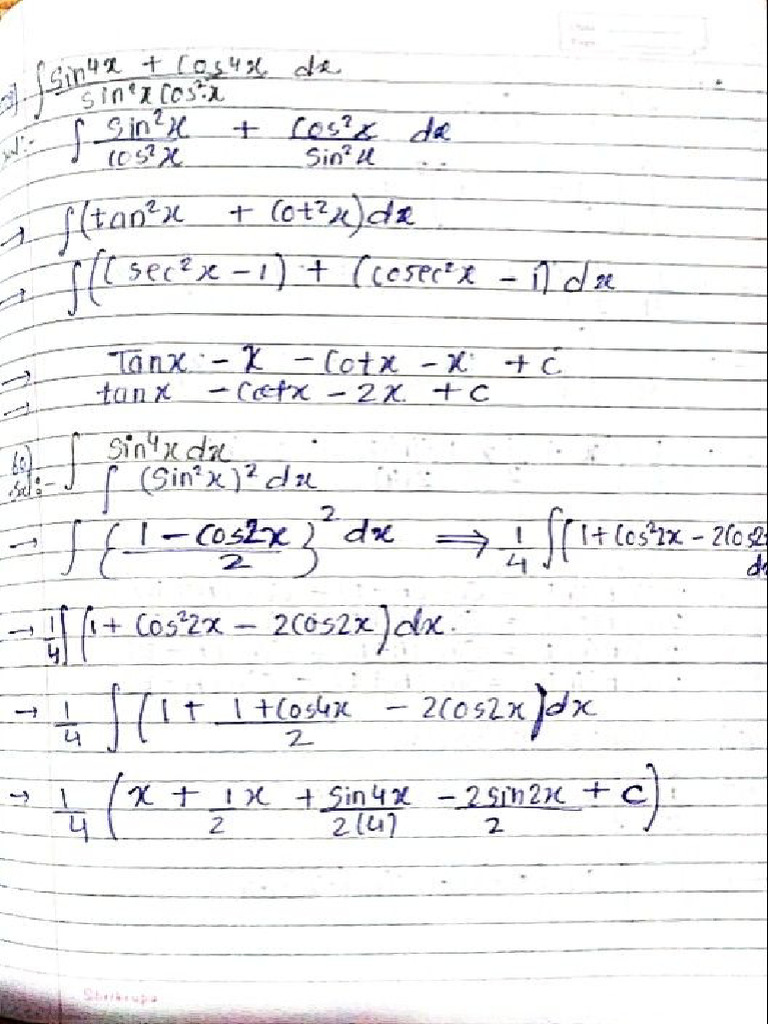 ∫ sin⁴x + cos⁴x / sin²x cos²x dx
Sol:- ∫ sin²x / cos²x + cos²x / sin²x dx
→ ∫(tan²x + cot²x)dx
→ ∫((sec²x - 1) + (cosec²x - 1) dx
→ Tanx - x - cotx - x + c
→ tanx - cotx - 2x + c
∫ sin⁴x dx
Sol:- ∫ (sin²x)² dx
→ ∫ {1 - cos2x / 2}² dx ⟹ 1/4 ∫(1 + cos²2x - 2cos2
→ 1/4 ∫(1 + cos²2x - 2cos2x)dx.
→ 1/4 ∫(1 + 1 + cos4x / 2 - 2cos2x)dx
→ 1/4 (x + 1/2 x + sin4x / 2(4) - 2sin2x / 2 + c)